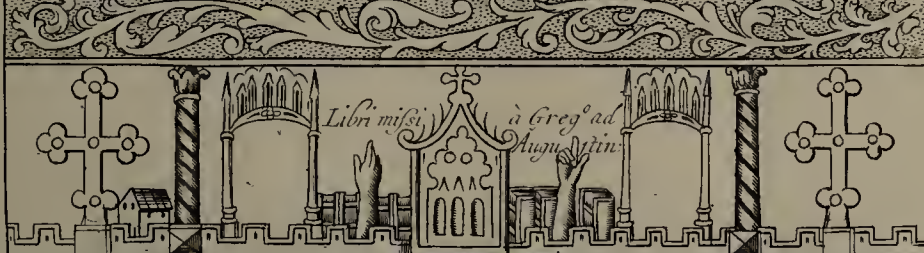 Libri missi, à Greg.º ad
Augustin: